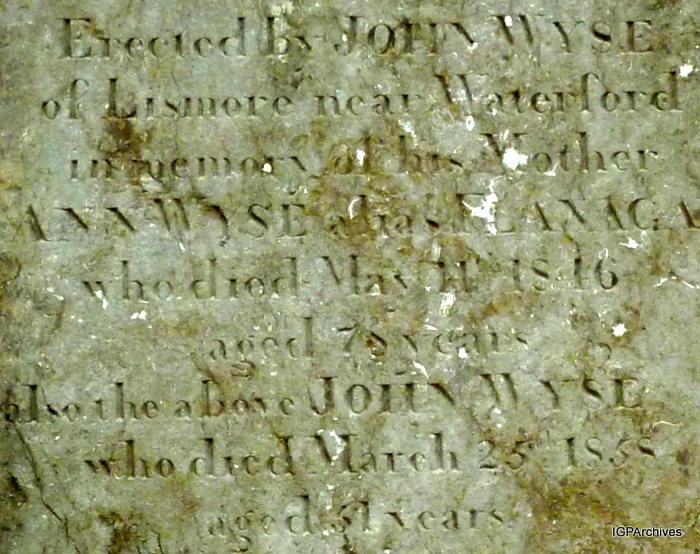 Erected by JOHN WYSE
of Lismore near Waterford
in memory of his Mother
ANN WYSE alias FLANAGA
who died May 11th 1846
aged 78 years
also the above JOHN WYSE
who died March 25th 1858
aged 51 years
IGPArchives